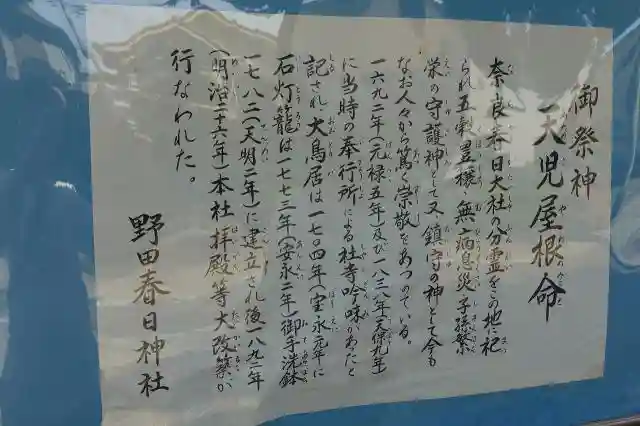 御祭神
天児屋根命
奈良春日大社の分霊をこの地に祀
られ五穀豊穣 無病息災 子孫繁
栄の守護神として又鎮守の神として今も
なお人々から篤い崇敬をあつめている。
一六九二年(元禄五年)及び一八三八年(天保九年)
に当時の奉行所による社寺吟味があたと
記され 大鳥居は一七〇四年(宝永元年)に
石灯籠は一七七三年(安永二年)御手洗鉢
一七八二(天明二年)に建立され後一八九二年
(明治二十六年)本社拝殿等大改築が
行なわれた。
野田春日神社